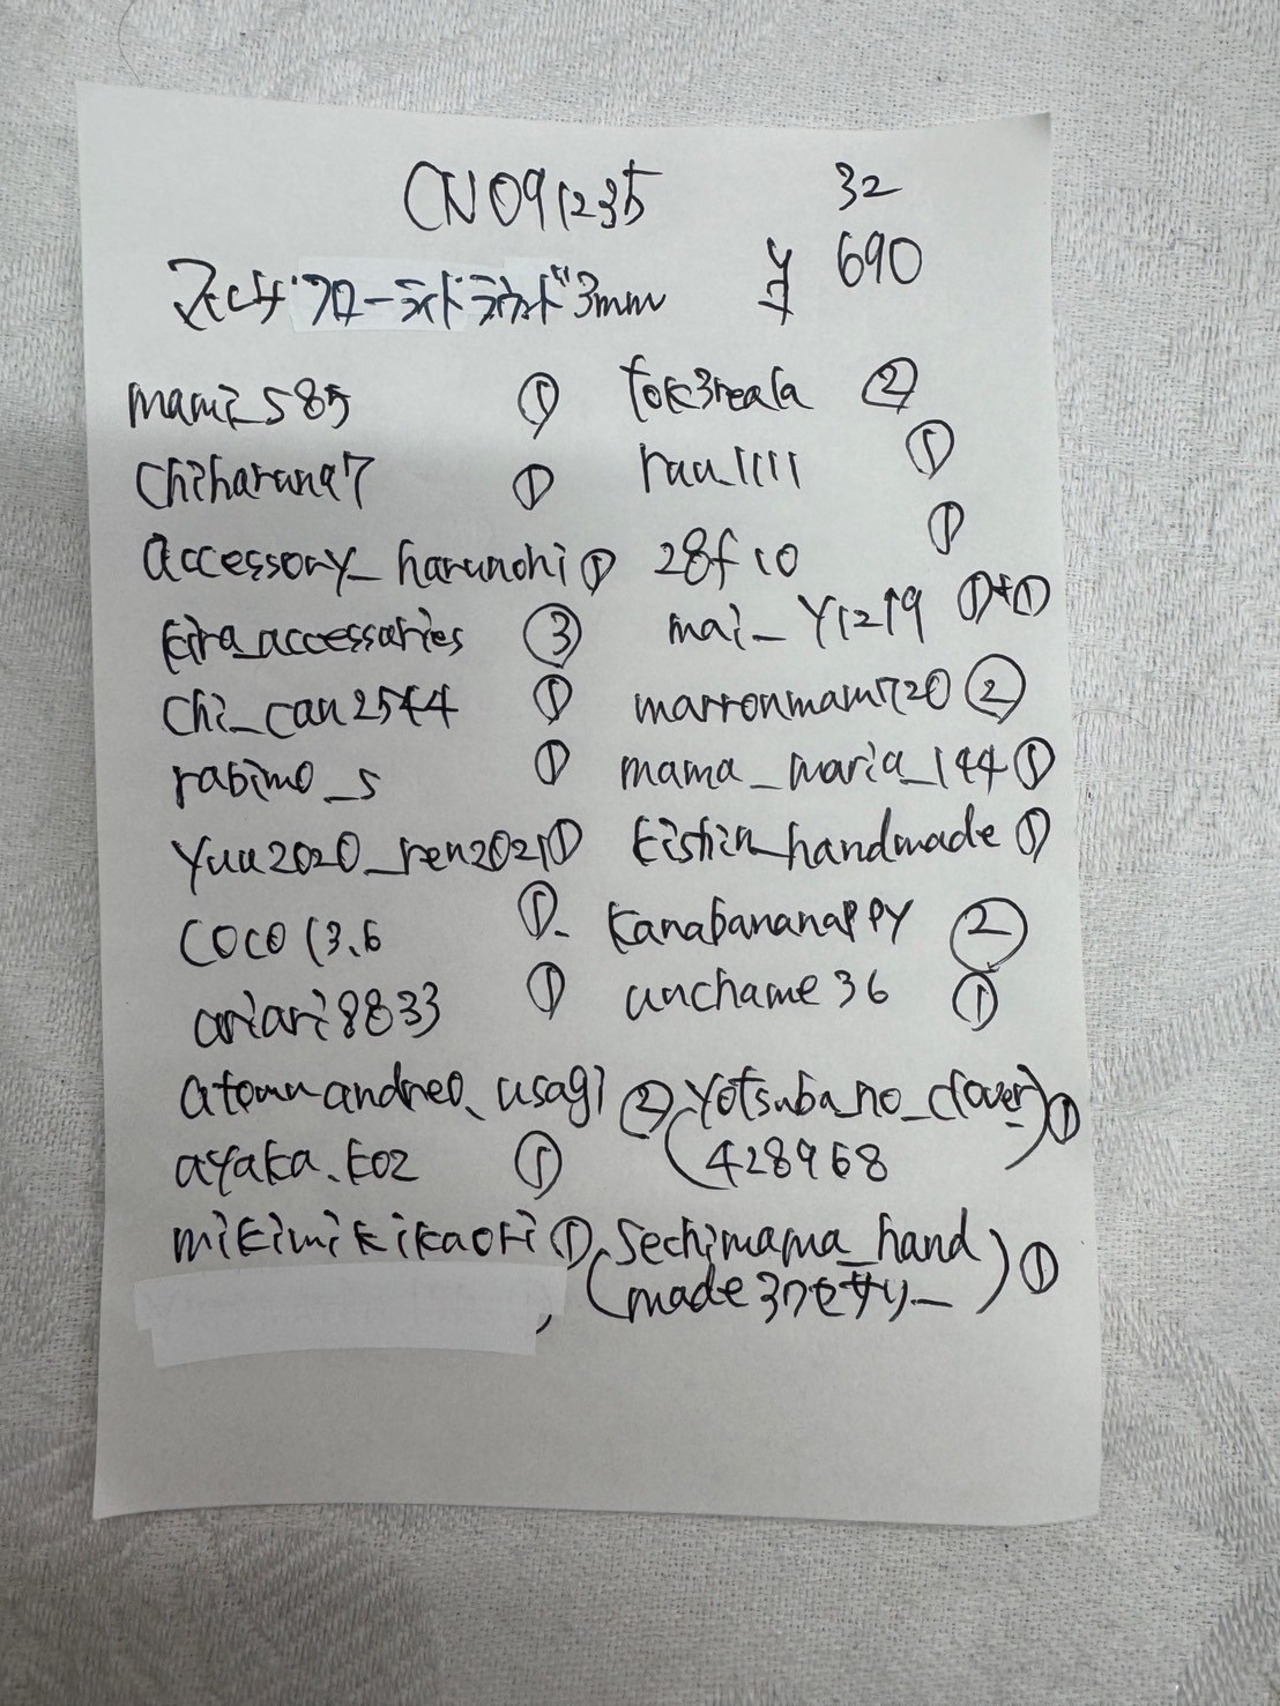 CN091235 32
フローライトラウンド3mm ¥ 690
mami_s85 ①
chiharuna7 ①
accessory_harunohi ①
kira_accessaries ③
chi_can2544 ①
rabimo_s ①
yuu2020_ren2021 ①
coco13.6 ①
ariari8833 ①
atomu_usagi ②
ayaka.koz ①
mikimikikaori ①
tok3reala ②
rau_1111 ①
28f10 ①
mai_y1219 ①+①
marronmam720 ②
mama_maria_144 ①
kishin_handmade ①
kanabananappy ②
unchame36 ①
yotsuba_no_clover
428968 ①
sechimama_hand
made ①